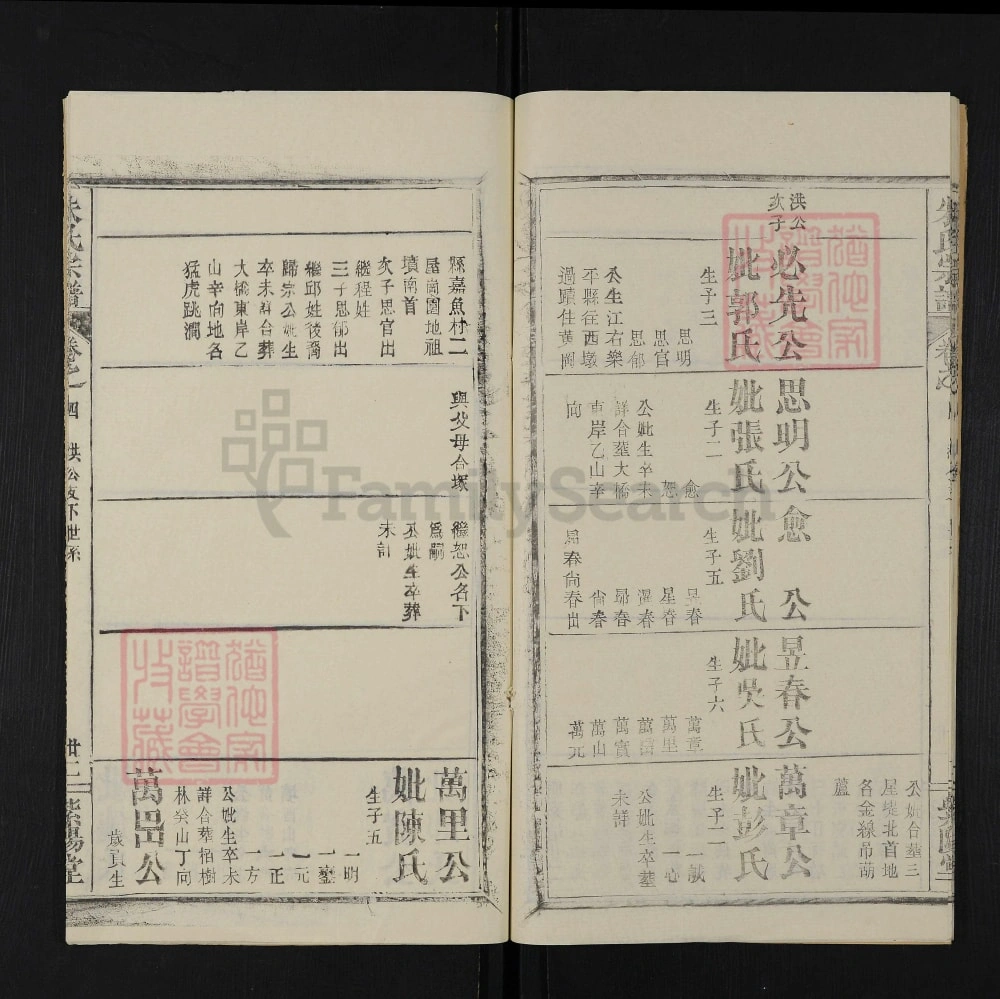 洪公
次子
必先公
妣郭氏
生子三
思明
思官
思郁
公生江右樂
平縣往西墩
過蹟住黄岡
思明公
妣張氏
生子二
愈
恕
公妣生卒未
詳合葬大橋
東岸乙山辛
向
愈公
妣劉氏
生子五
昱春
星春
濕春
昴春
尚春
昴春尚春出
昱春公
妣吳氏
生子六
萬章
萬里
萬寳
萬山
萬元
公妣合葬三
屋堤北首地
名金線吊葫
蘆
萬章公
妣彭氏
生子二
一誠
一心
公妣生卒葬
未詳
朱氏宗譜
卷之一
四
洪公支下世系
廿二
紫陽堂
縣嘉魚村二
屋崗園地祖
墳南首
次子思官出
繼程姓
三子思郁出
繼邱姓後裔
歸宗公妣生
卒未詳合葬
大橋東岸乙
山辛向地名
猛虎跳澗
與父母合塚
繼恕公名下
爲嗣
公妣生卒葬
未詳
萬里公
妣陳氏
生子五
一明
一鑾
一元
一正
一方
公妣生卒未
詳合葬柏樹
林癸山丁向
萬邑公
歲貢生
FamilySearch